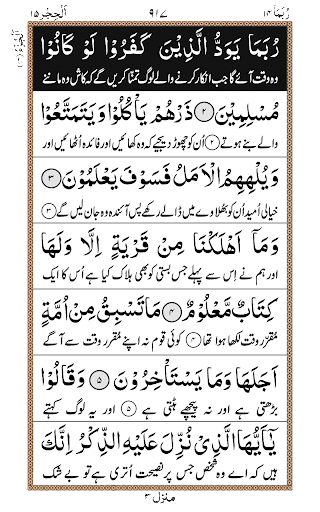 رُبَمَا ١٤ ٩١٧ اَلْحِجْر ١٥
رُبَمَا يَوَدُّ الَّذِيْنَ كَفَرُوْا لَوْ كَانُوْا
وہ وقت آئے گا جب انکار کرنے والے لوگ تمنا کریں گے کہ کاش وہ ماننے
مُسْلِمِيْنَ ۝٢ ذَرْهُمْ يَاْكُلُوْا وَيَتَمَتَّعُوْا
والے بنے ہوتے ۝٢ اُن کو چھوڑ دیجیے کہ وہ کھائیں اور فائدہ اُٹھائیں اور
وَيُلْهِهِمُ الْاَمَلُ فَسَوْفَ يَعْلَمُوْنَ ۝٣
خیالی اُمید اُن کو بھلاوے میں ڈالے رکھے پس آئندہ وہ جان لیں گے ۝٣
وَمَآ اَهْلَكْنَا مِنْ قَرْيَةٍ اِلَّا وَلَهَا
اور ہم نے اِس سے پہلے جس بستی کو بھی ہلاک کیا ہے اُس کا ایک
كِتَابٌ مَّعْلُوْمٌ ۝٤ مَا تَسْبِقُ مِنْ اُمَّةٍ
مقرّر وقت لکھا ہوا تھا ۝٤ کوئی قوم نہ اپنے مقرر وقت سے آگے
اَجَلَهَا وَمَا يَسْتَاْخِرُوْنَ ۝٥ وَقَالُوْا
بڑھتی ہے اور نہ پیچھے ہٹتی ہے ۝٥ اور یہ لوگ کہتے
يٰٓاَيُّهَا الَّذِيْ نُزِّلَ عَلَيْهِ الذِّكْرُ اِنَّكَ
ہیں کہ اے وہ شخص جس پر نصیحت اُتری ہے تو بے شک
منزل ٣